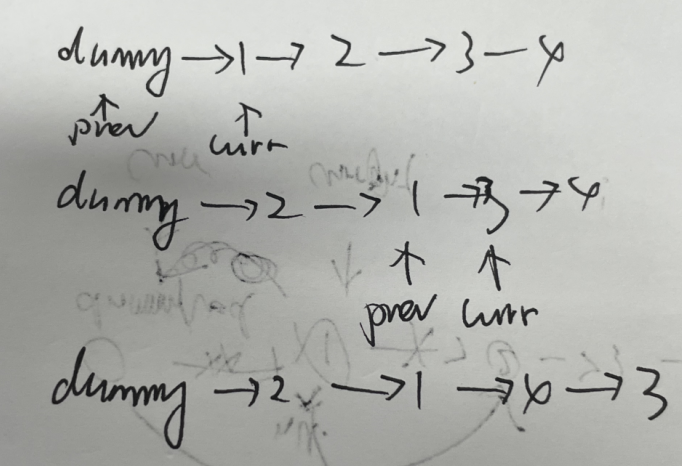 dummy → 1 → 2 → 3 — 4
↑ ↑
prev curr
dummy → 2 → 1 → 3 → 4
↑ ↑
prev curr
dummy → 2 → 1 → 4 → 3